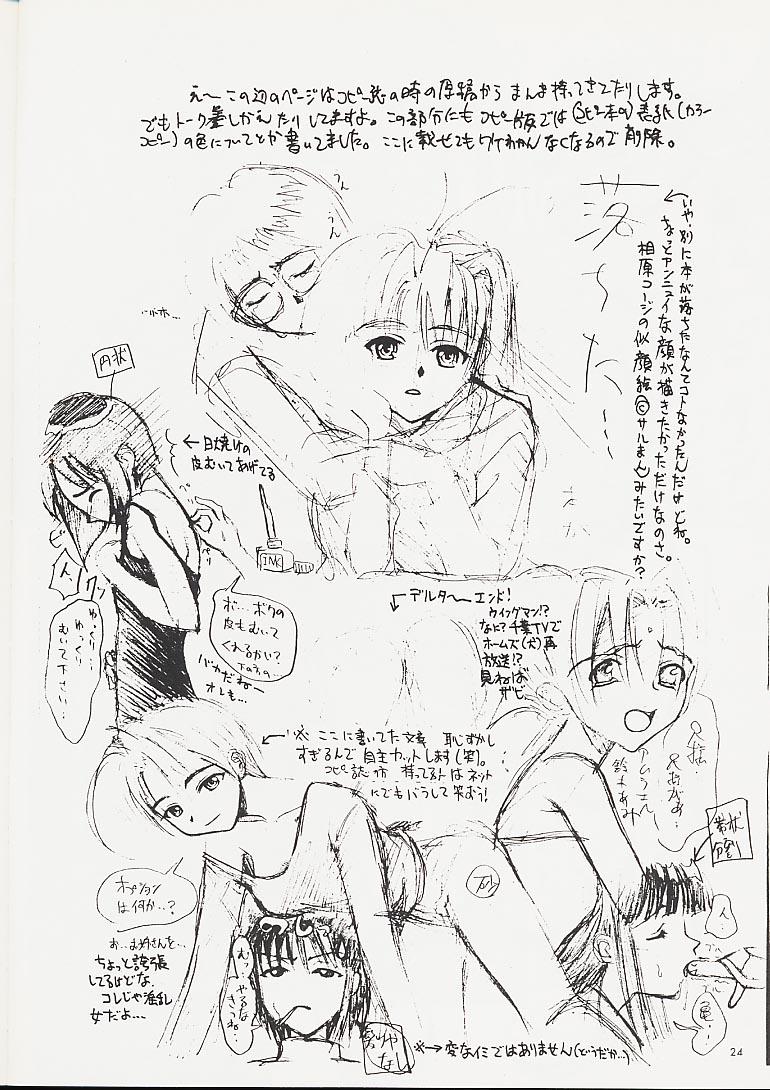 え〜この辺のページはコピー誌の時の原稿からまんま持ってきてたりします。
でもトーク量しかえたりしてますよ。この部分にもコピー版では(コピー本の)表紙(カラー
コピー)の色についてとか書いてました。ここに載せてもワケわかんなくなるので削除。
落ちた…
←いや、別に本が落ちたなんてコトなかったんだけどね。
ちょっとアンニュイな顔が描きたかっただけなのさ。
相原コージの似顔絵©サルまんみたいですか?
うん
うん
円状
←日焼けの
皮むいてあげてる
INK
ペリ
お…ボクの
皮もむいて
くれるかい?
バカだねー
オレも…
ゆっくり…
ゆっくり
むいて下さい…
←デルタ〜エンド!
ウイングマン!?
なに?千葉TVで
ホームズ(犬)再
放送!?
見ねば
ザビ
←※ここに書いてた文章 恥ずかし
すぎるんで自主カットします(笑)。
コピー誌 持ってる人はネット
にでもバラして笑おう!
鈴木あみ
帯状
オプション
は何か…?
お…お姉さんを…
ちょっと誇張
してるけどな
コレじゃ淫乱
女だよ…
む…やるな
きつね…
なし
※→変なイミではありません(どうだか…)
24